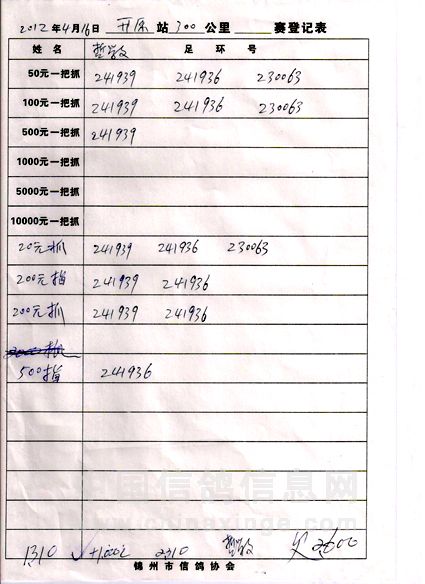 2012年4月16日 开原站300公里 赛登记表
姓名 足环号
50元一把抓 241939 241936 230063
100元一把抓 241939 241936 230063
500元一把抓 241939
1000元一把抓
5000元一把抓
10000元一把抓
20元抓 241939 241936 230063
200元指 241939 241936
200元抓 241939 241936
500指 241936
中国信鸽信息网
www.chinaxinge.com
1310 2310 2600
锦州市信鸽协会